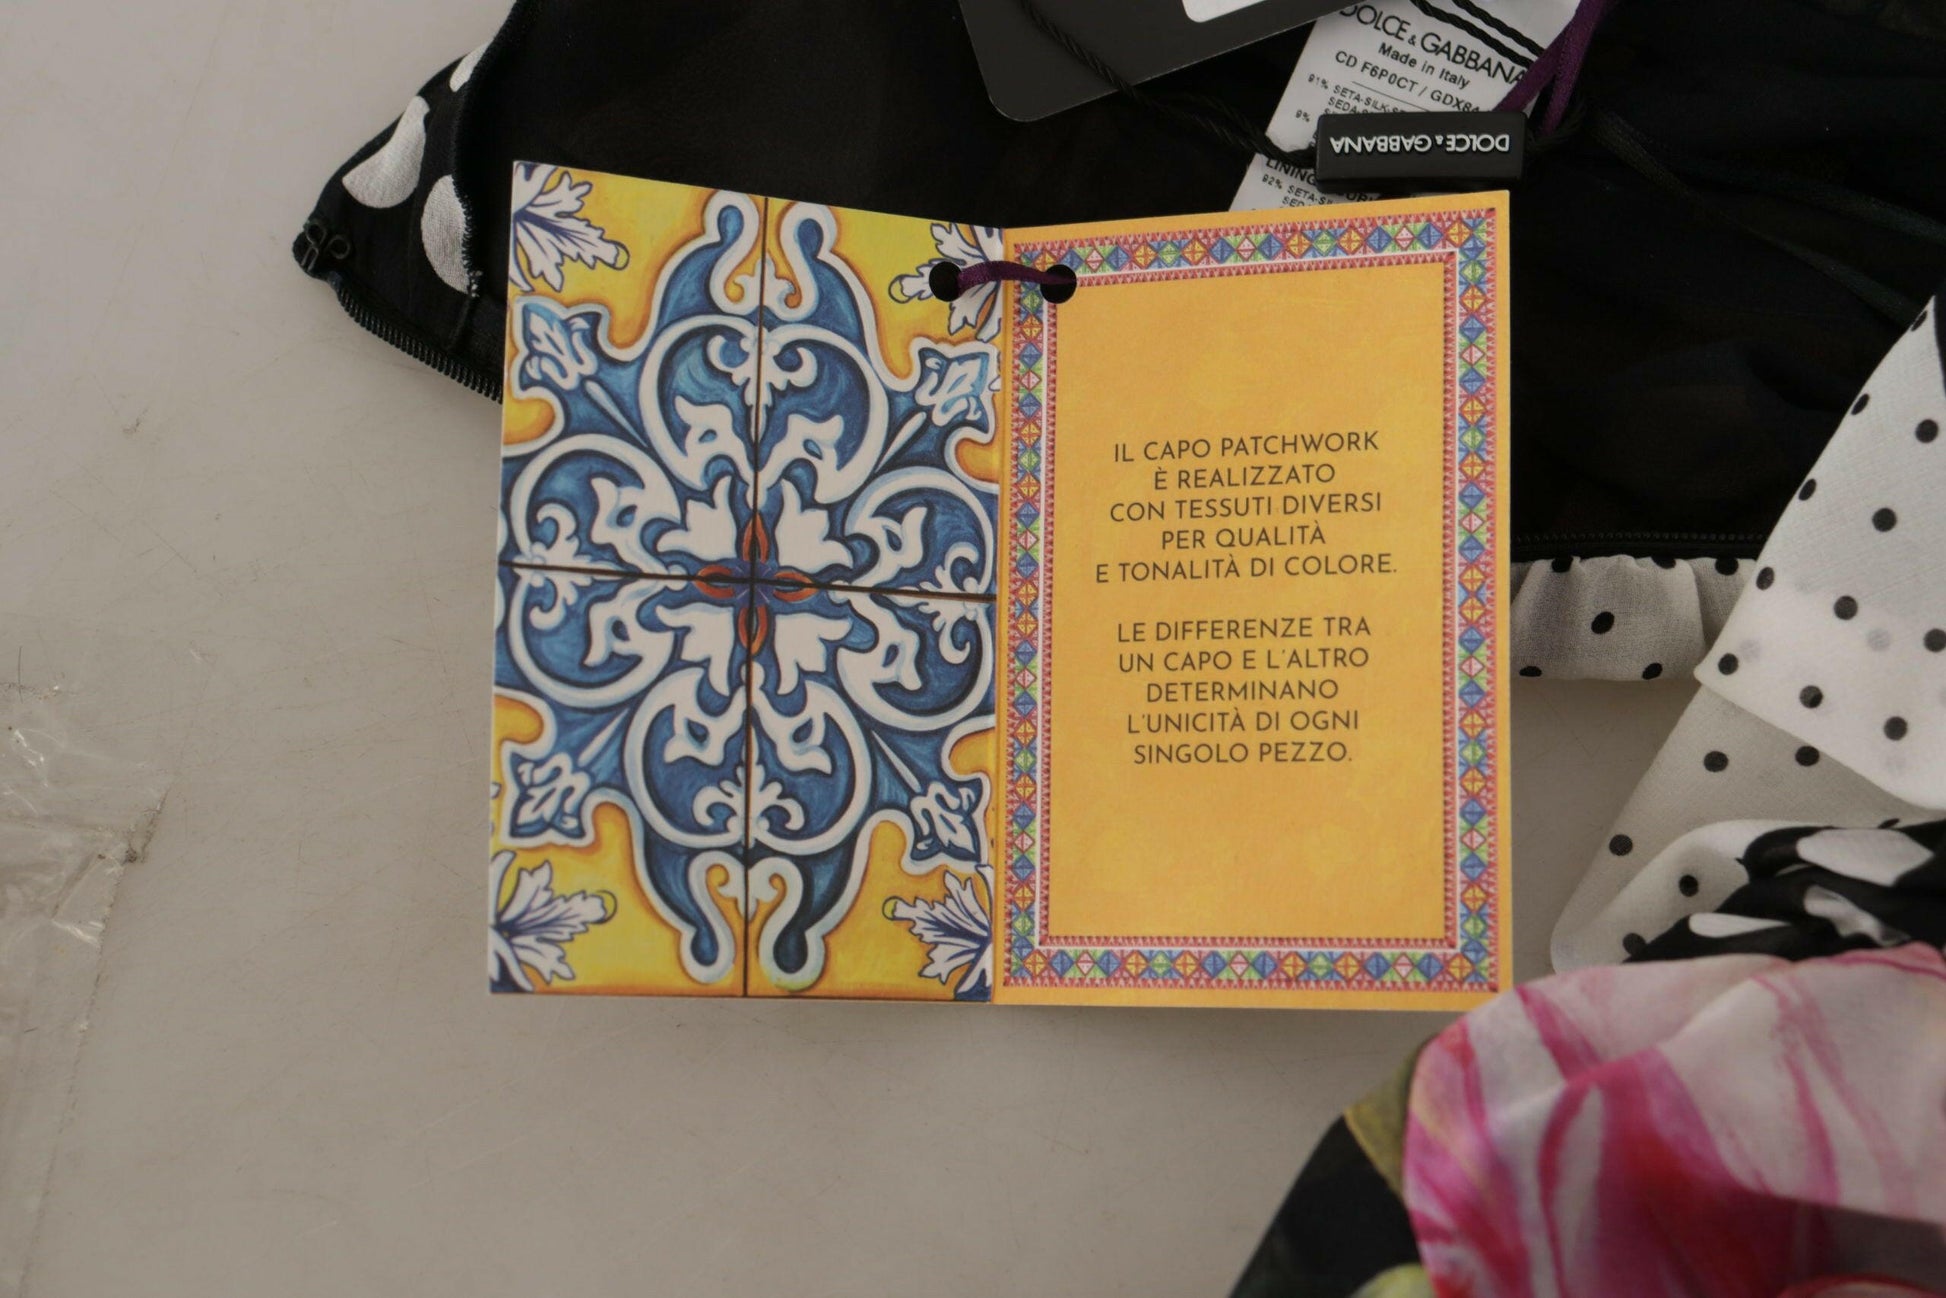 DOLCE & GABBANA
Made in Italy
CD F6P0CT /
91% SETA-SILK
9%
DOLCE & GABBANA
LINING
92% SETA
IL CAPO PATCHWORK
È REALIZZATO
CON TESSUTI DIVERSI
PER QUALITÀ
E TONALITÀ DI COLORE.
LE DIFFERENZE TRA
UN CAPO E L'ALTRO
DETERMINANO
L'UNICITÀ DI OGNI
SINGOLO PEZZO.